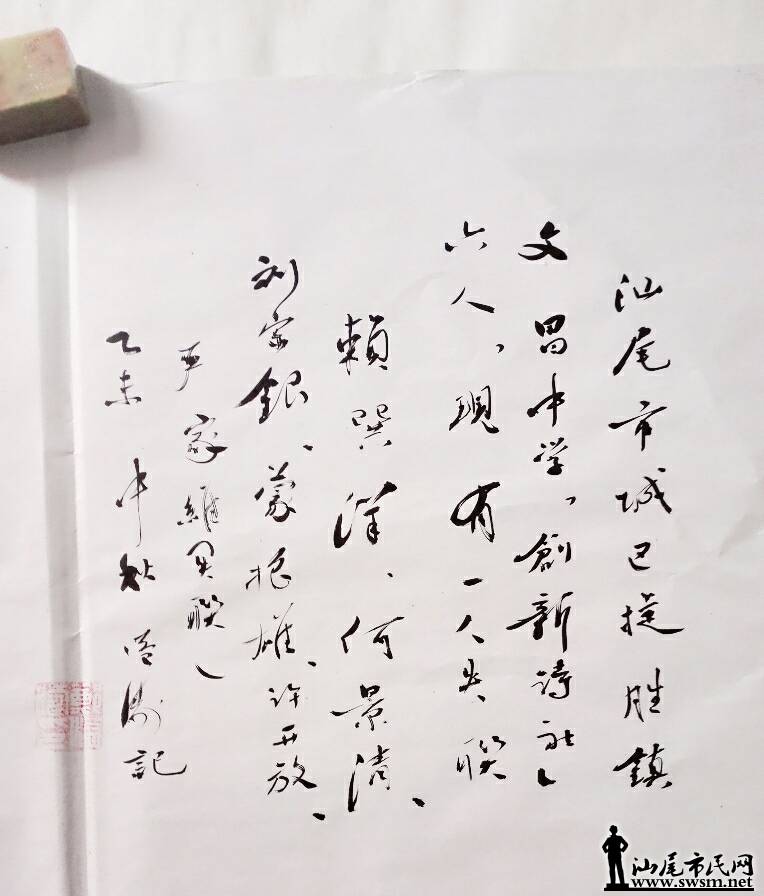 汕尾市城区捷胜鎮
文昌中学、創新詩社
六人、現有一人失联
賴巽洋、何景清、
刘家銀、蒙挹雄、许开放、
家維失联
乙未中秋 記
汕尾市民网
www.swsm.net